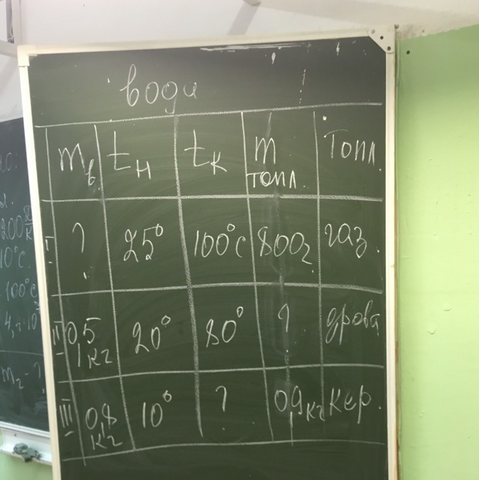 води
mв tн tк m топл. Топл.
I ? 25° 100°C 800г газ.
II 0,5 кг 20° 80° ? дрова
III 0,8 кг 10° ? 0,9 кг кер.
200
10°C
100°C
m₂ - ?